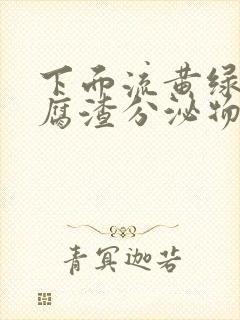 下面流黄绿
腐渣分泌物
青冥迦若